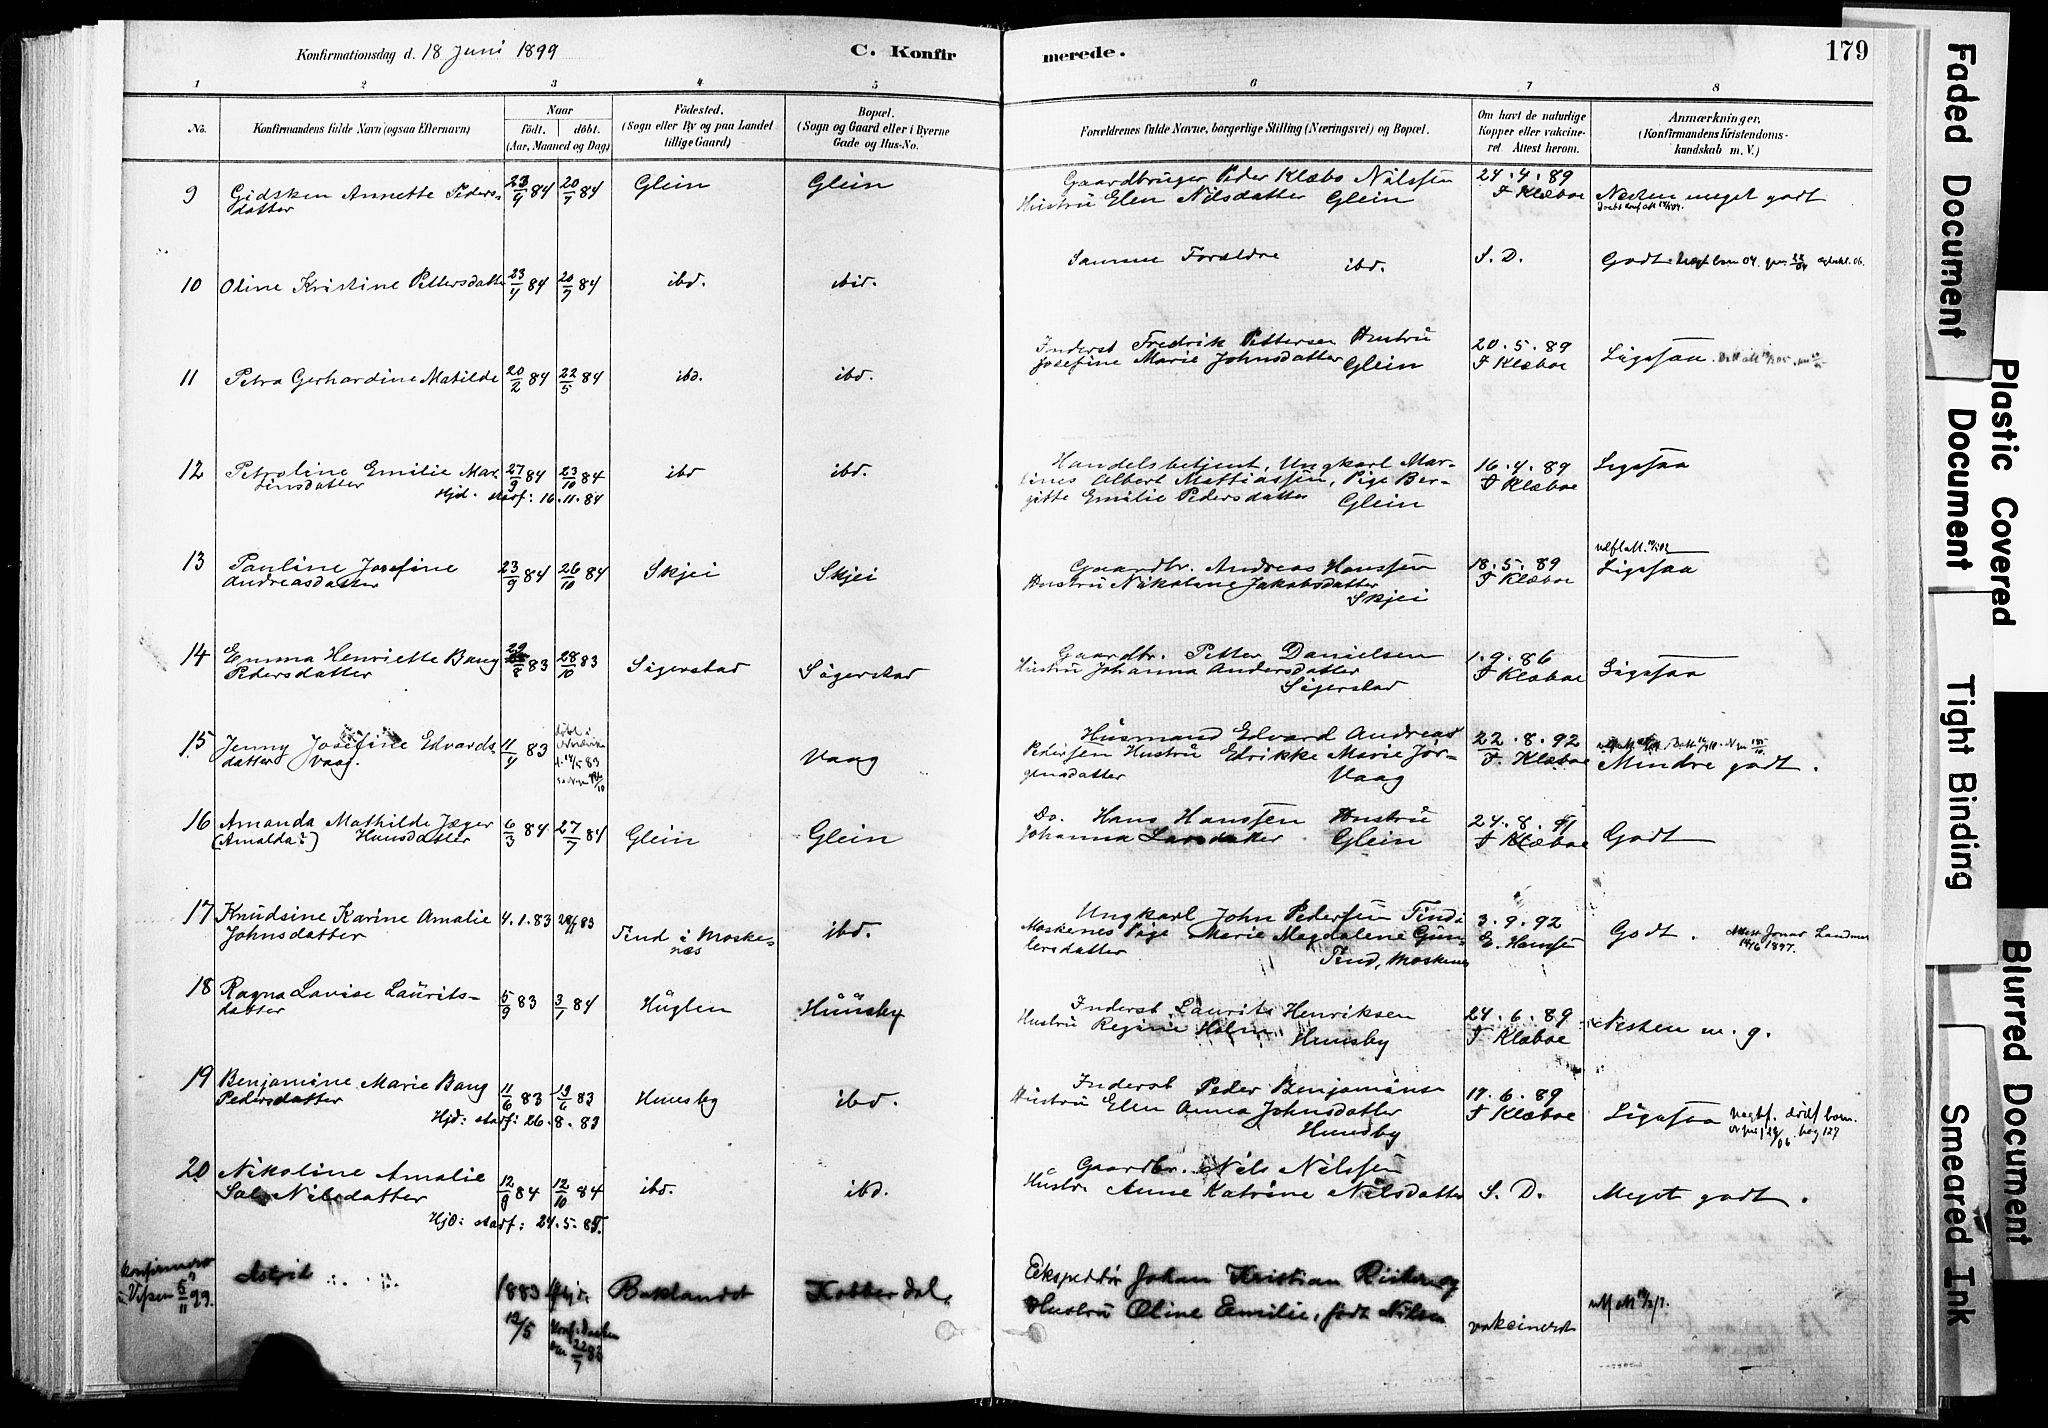 Konfirmationsdag d. 18 Juni 1899
C. Konfir
merede.
179
1 2 3 4 5 6 7 8
No.
Konfirmandens fulde Navn (ogsaa Efternavn)
Naar
födt. döbt.
(Aar, Maaned og Dag)
Födested.
(Sogn eller By og paa Landet
tillige Gaard)
Bopæl.
(Sogn og Gaard eller i Byerne
Gade og Hus-No.
Forældrenes fulde Navne, borgerlige Stilling (Næringsvei) og Bopæl.
Om havt de naturlige
Kopper eller vakcine-
ret Attest herom.
Anmærkninger.
(Konfirmandens Kristendoms-
kundskab m. V.)
9 Gidsken Annette Peders-
datter
23/4 84 20/7 84 Glein Glein
Gaardbruger Peder Klæbo Nilssen
Hustru Elen Nilsdatter Glein
24.4.89
F Klæboe
Næsten meget godt
10 Oline Kristine Pettersdatter 23/4 84 20/7 84 ibd. ibid.
Samme Forældre ibd.
S. D.
Godt
11 Petra Gerhardine Matilde 20/2 84 22/5 84 ibd. ibd.
Inderst Fredrik Pettersen Hustru
Josefine Marie Johnsdatter Glein
20.5.89
F Klæboe
Ligesaa
12 Petroline Emilie Mar-
tinsdatter
27/9 84 23/10 84 ibd ibd.
Hjd. starf: 16.11.84
Handelsbetjent, Ungkarl Mar-
tines Albert Mattiassen, Pige Ber-
gitte Emilie Pedersdatter Glein
16.4.89
F Klæboe
Ligesaa
13 Pauline Josefine
Andreasdatter
23/9 84 26/10 84 Skjei Skjei
Gaardbr. Andreas Hanssen
Hustru Nikoline Jakobsdatter
Skjei
18.5.89
F Klæboe
Ligesaa
14 Emma Henriette Bang
Pedersdatter
83 28/10 83 Sigerstad Sigerstad
Gaardbr. Petter Danielsen
Hustru Johanna Andersdatter
Sigerstad
1.9.86
F Klæboe
Ligesaa
15 Jenny Josefine Edvards-
datter Vaag.
11/4 83 Vaag
Husmand Edvard Andreas
Pedersen Hustru Edrikke Marie Jör-
gensdatter Vaag
22.8.92
F. Klæboe
Mindre godt.
16 Amanda Mathilde Jæger
(Amalda?) Hansdatter
6/3 84 27/7 84 Glein Glein
Do. Hans Hanssen Hustru
Johanna Larsdatter Glein
24.8.91
F Klæboe
Godt
17 Knudsine Karine Amalie
Johnsdatter
4.1.83 83 Tind i Moske-
næs
ibd.
Ungkarl John Pedersen Tind i
Moskenes Pige Marie Magdalene Gun-
lersdatter Tind, Moskenes
3.9.92
E. Hansen
Godt.
18 Ragna Lovise Laurits-
datter
5/9 83 3/1 84 Huglen Huusby
Inderst Laurits Henriksen
Hustru Regine Holm Huusby
24.6.89
F Klæboe
Nesten m. g.
19 Benjamine Marie Bang
Pedersdatter
11/6 83 13/6 83 Huusby ibd.
Hjd: starf: 26.8.83
Inderst Peder Benjamins
Hustru Elen Anna Johnsdatter
Huusby
17.6.89
F Klæboe
Ligesaa
20 Nikoline Amalie
Nilsdatter
12/8 84 12/10 84 ibd. ibd.
Hjd: starf: 24.5.85.
Gaardbr. Nils Nilssen
Hustru Anne Katrine Nilsdatter
S. D.
Meget godt.
Konfirmeret
i Vefsen 5/11 99.
Astrid
1883
12/5
Baklandet Kobberdal.
Ekspeditör Johan Kristian
Hustru Oline Emilie, född Nilsen
vakcineret
Faded Document
Plastic Covered Document
Tight Binding
Blurred Document
Smeared Ink